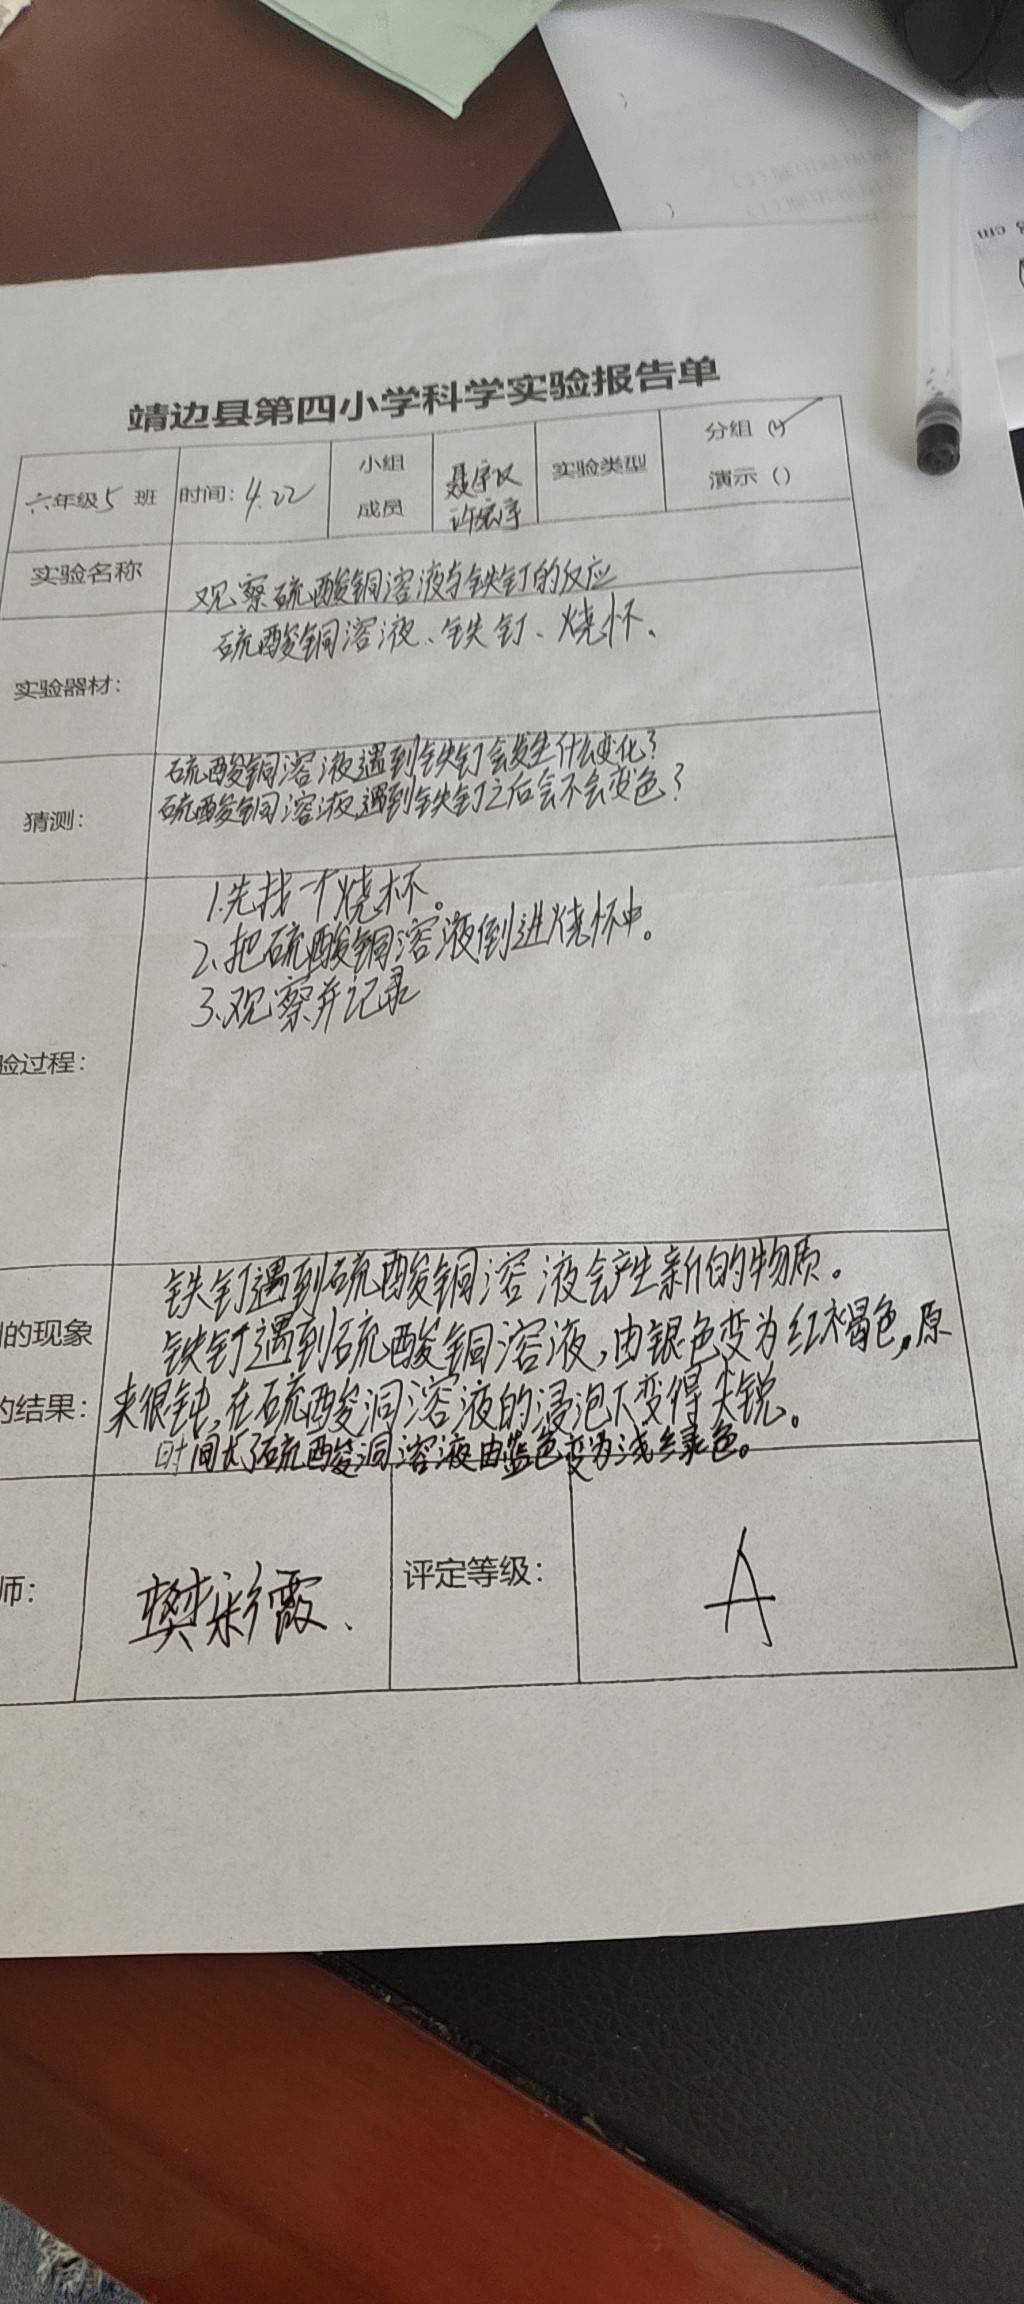 靖边县第四小学科学实验报告单
六年级5班 时间：4.22 小组成员 实验类型 分组（✓）
演示（）
实验名称 观察硫酸铜溶液与铁钉的反应
实验器材： 硫酸铜溶液、铁钉、烧杯、
猜测： 硫酸铜溶液遇到铁钉会发生什么变化？
硫酸铜溶液遇到铁钉之后会不会变色？
验过程： 1.先找一个烧杯。
2.把硫酸铜溶液倒进烧杯中。
3.观察并记录
的现象 铁钉遇到硫酸铜溶液会产生新的物质。
铁钉遇到硫酸铜溶液，由银色变为红褐色，原
的结果： 来很钝，在硫酸洞溶液的浸泡下变得尖锐。
时间长了硫酸洞溶液由蓝色变为浅绿色。
师： 樊彩霞、 评定等级： A
cm